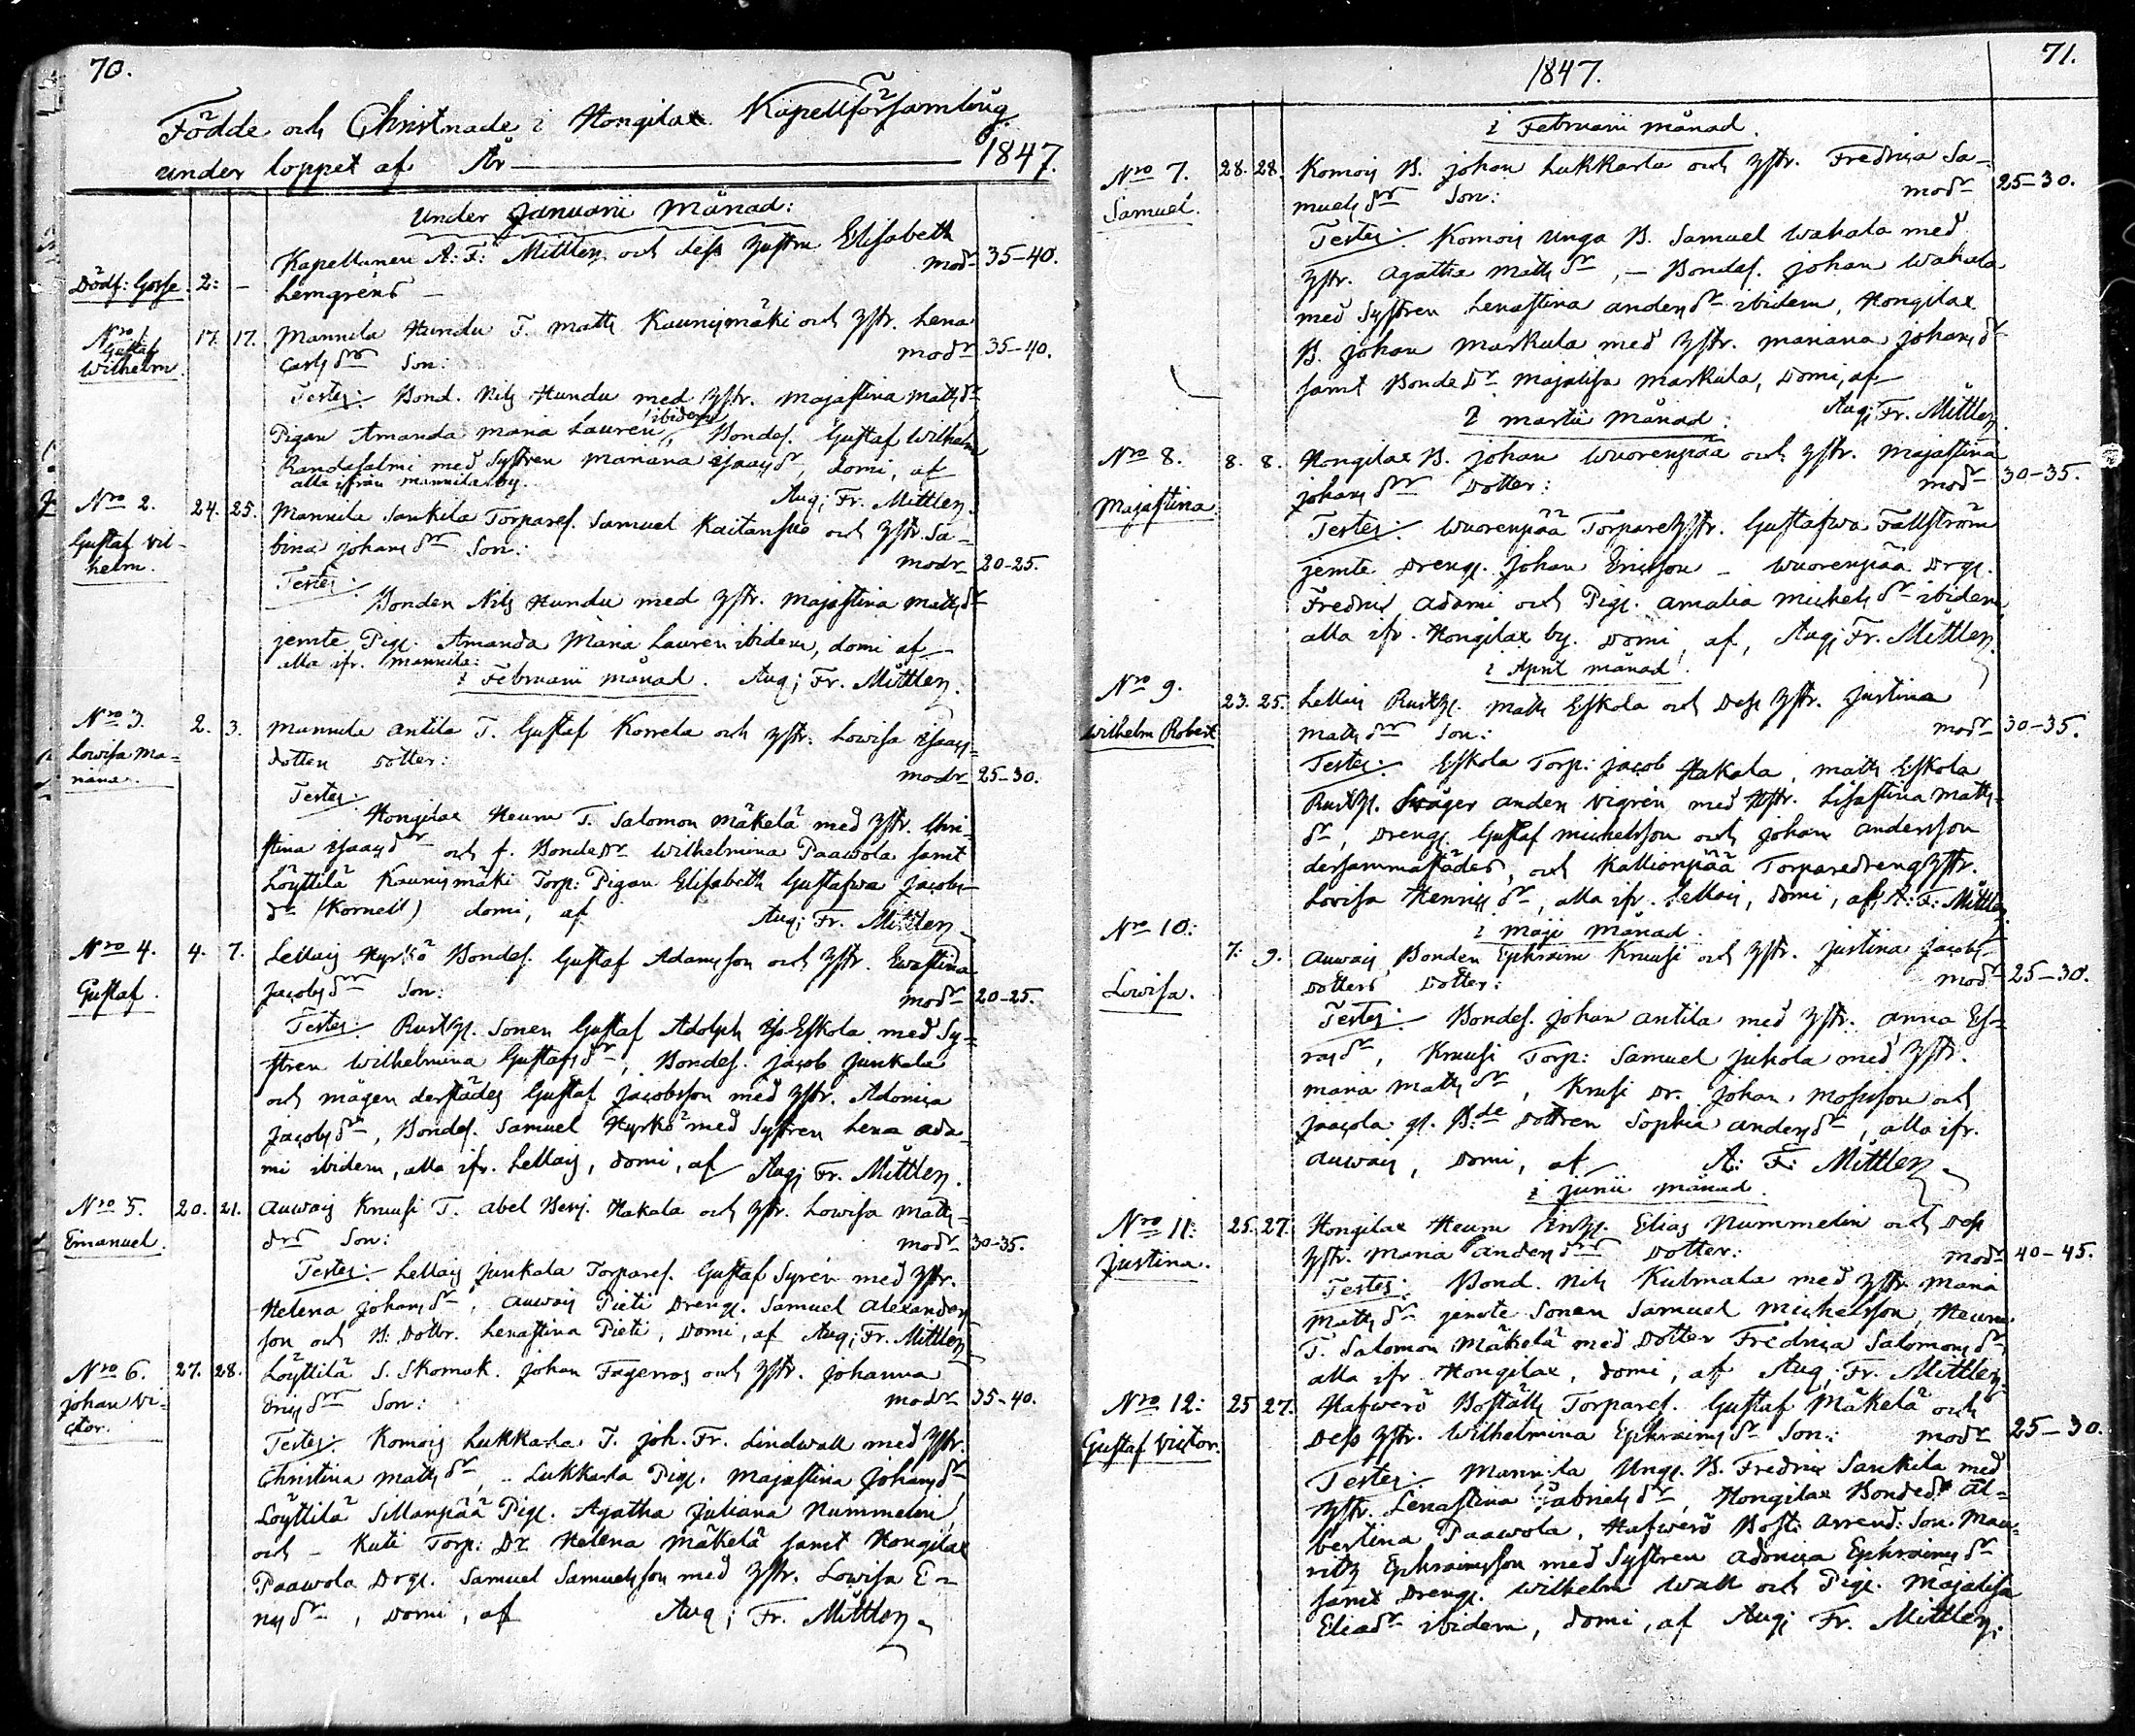 70.
Födde och Christnade i Hongilax Kapellförsamling
under loppet af År 1847.
Under Januarii Månad:
Dödf: Gosse. 2: - Kapellanen A: F: Mittler och dess hustru Elisabeth
Lemgréns - modr 35-40.
Nro 1. Gustaf Wilhelm. 17. 17. Mannila Hundu T. Matts Kaunismäki och hstr. Lena
Carls drs Son: modr 35-40.
Testes: Bond. Nils Hundu med hstr. Majastina Matts dr
Pigan Amanda Maria Lauren ibidem, Bondes. Gustaf Wilhelm
Randasalmi med Systren Mariana Isaacs dr, domi, af
alla ifrån Mannila by. Aug; Fr. Mittler.
Nro 2. 24. 25. Mannila Sankila Torpares. Samuel Kaitansuo och hstr. Sa-
Gustaf Vil-
helm.
bina Johans dr Son: modr 20-25.
Testes:
Bonden Nils Hundu med hstr. Majastina Matts dr
jemte Pig. Amanda Maria Lauren ibidem, domi af
alla ifr. Mannila:
i Februarii månad. Aug; Fr. Mittler.
Nro 3. 2. 3. Mannila Antila T. Gustaf Korrela och hstr. Lowisa Isaacs-
Lowisa Ma-
riana.
dotters dotter: modr 25-30.
Testes:
Hongilax Heuru T. Salomon Mäkelä med hstr. Chri-
stina Isaacs dr och f. Bonde Dr Wilhelmina Paawola samt
Löyttilä Kaunismäki Torp: Pigan Elisabeth Gustafwa Jacobs
dr (Kornell) domi, af Aug; Fr. Mittler
Nro 4. 4. 7. Lellais Hyrkö Bondes. Gustaf Adamsson och hstr. Ewastina
Gustaf.
Jacobs dr Son: modr 20-25.
Testes: Rusth. Sonen Gustaf Adolph Iso Eskola med Sy-
stren Wilhelmina Gustafs dr, Bondes. Jacob Junkala
och mågen derstädes Gustaf Jacobsson med hstr. Adonica
Jacobs dr, Bondes. Samuel Hyrkö med Systren Lena Ada-
mi ibidem, alla ifr. Lellais, domi, af Aug; Fr. Mittler.
Nro 5. 20. 21. Auwais Kruusi T. Abel Benj. Hakala och hstr. Lowisa Matts-
Emanuel.
drs Son: modr 30-35.
Testes: Lellais Junkala Torpares. Gustaf Syrén med hstr.
Helena Johans dr, Auwais Pieti Dreng. Samuel Alexanders-
son och B: Dottr. Lenastina Pieti, Domi, af Aug; Fr. Mittler
Nro 6. 27. 28. Löyttilä S. Skomak. Johan Fagerroos och hstr. Johanna
Johan Vi-
ctor.
Erics drs Son: modr 35-40.
Testes: Komois Lukkarla T. Joh. Fr. Lindwall med hstr.
Christina Matts dr, Lukkarla Pig. Majastina Johans dr
Löyttilä Sillanpää Pig. Agatha Juliana Nummelin
och - Kuti Torp: Dr. Helena Mäkelä samt Hongilax
Paawola Drg. Samuel Samuelsson med hstr. Lowisa E-
rics dr, Domi, af Aug; Fr. Mittler
71.
1847.
i Februarii månad.
Nro 7. 28. 28. Komois B. Johan Lukkarla och hstr. Fredrica Sa-
Samuel.
muels dr Son: modr 25-30.
Testes: Komois Unga B. Samuel Wahala med
hstr. Agatha Matts dr, - Bondes. Johan Wahala
med Systren Lenastina Anders dr ibidem, Hongilax
B. Johan Markula med hstr. Mariana Johans dr
samt Bonde Dr Majalisa Markula, Domi, af
Aug; Fr. Mittler
i Martii månad:
Nro 8. 8. 8. Hongilax B. Johan Wuorenpää och hstr. Majastina
Majastina.
Johans drs Dotter: modr 30-35.
Testes: Wuorenpää Torpare hstr. Gustafwa Fallström
jemte Dreng. Johan Ericsson - Wuorenpää Drg.
Fredric Adami och Pig. Amalia Michels dr ibidem
alla ifr. Hongilax by. Domi, af, Aug; Fr. Mittler.
i April månad.
Nro 9. 23. 25. Lellais Rusth. Matts Eskola och Dess hstr. Justina
Wilhelm Robert
Matts drs Son: modr 30-35.
Testes: Eskola Torp: Jacob Hakala, Matts Eskola
Rusth. Swåger Anders Vigrén med hstr. Lisastina Matts-
dr, Dreng. Gustaf Michelsson och Johan Andersson
dersammastädes, och Kallionpää Torparedreng hstr.
Lovisa Henrics dr, alla ifr. Lellais, Domi, af A: F: Mittler
i Maji månad.
Nro 10: 7: 9. Auwais Bonden Ephraim Kruusi och hstr. Justina Jacobs-
Lowisa.
dotters Dotter: modr 25-30.
Testes: Bondes. Johan Antila med hstr. Anna Es-
ras dr, Kruusi Torp: Samuel Juhola med hstr.
Maria Matts dr, Krusi Dr. Johan Mosisson och
Jaacola g. B:de Dottren Sophia Anders dr, alla ifr.
Auwais, Domi, af A: F: Mittler
i Junii månad.
Nro 11: 25. 27. Hongilax Heuru Enkl. Elias Nummelin och Dess
Justina.
hstr. Maria Anders drs Dotter: modr 40-45.
Testes: Bond. Nils Kulmala med hstr Maria
Matts dr jemte Sonen Samuel Michelsson, Heuru
T. Salomon Mäkelä med Dotter Fredrica Salomons dr
alla ifr Hongilax, Domi, af Aug; Fr. Mittler.
Nro 12: 25 27. Hafwerö Boställs Torpares. Gustaf Mäkelä och
Gustaf Victor.
Dess hstr. Wilhelmina Ephraims dr Son: modr 25-30.
Testes: Mannila Ung. B. Fredric Sankila med
hstr. Lenastina Gabriels dr, Hongilax Bonde dr Al-
bertina Paawola, Hafwerö Bost: Arrend: Son. Mau-
ritz Ephraimsson med Systren Adonica Ephraims dr
samt Dreng. Wilhelm Wall och Pig. Majalisa
Eliadr ibidem, Domi, af Aug; Fr. Mittler.